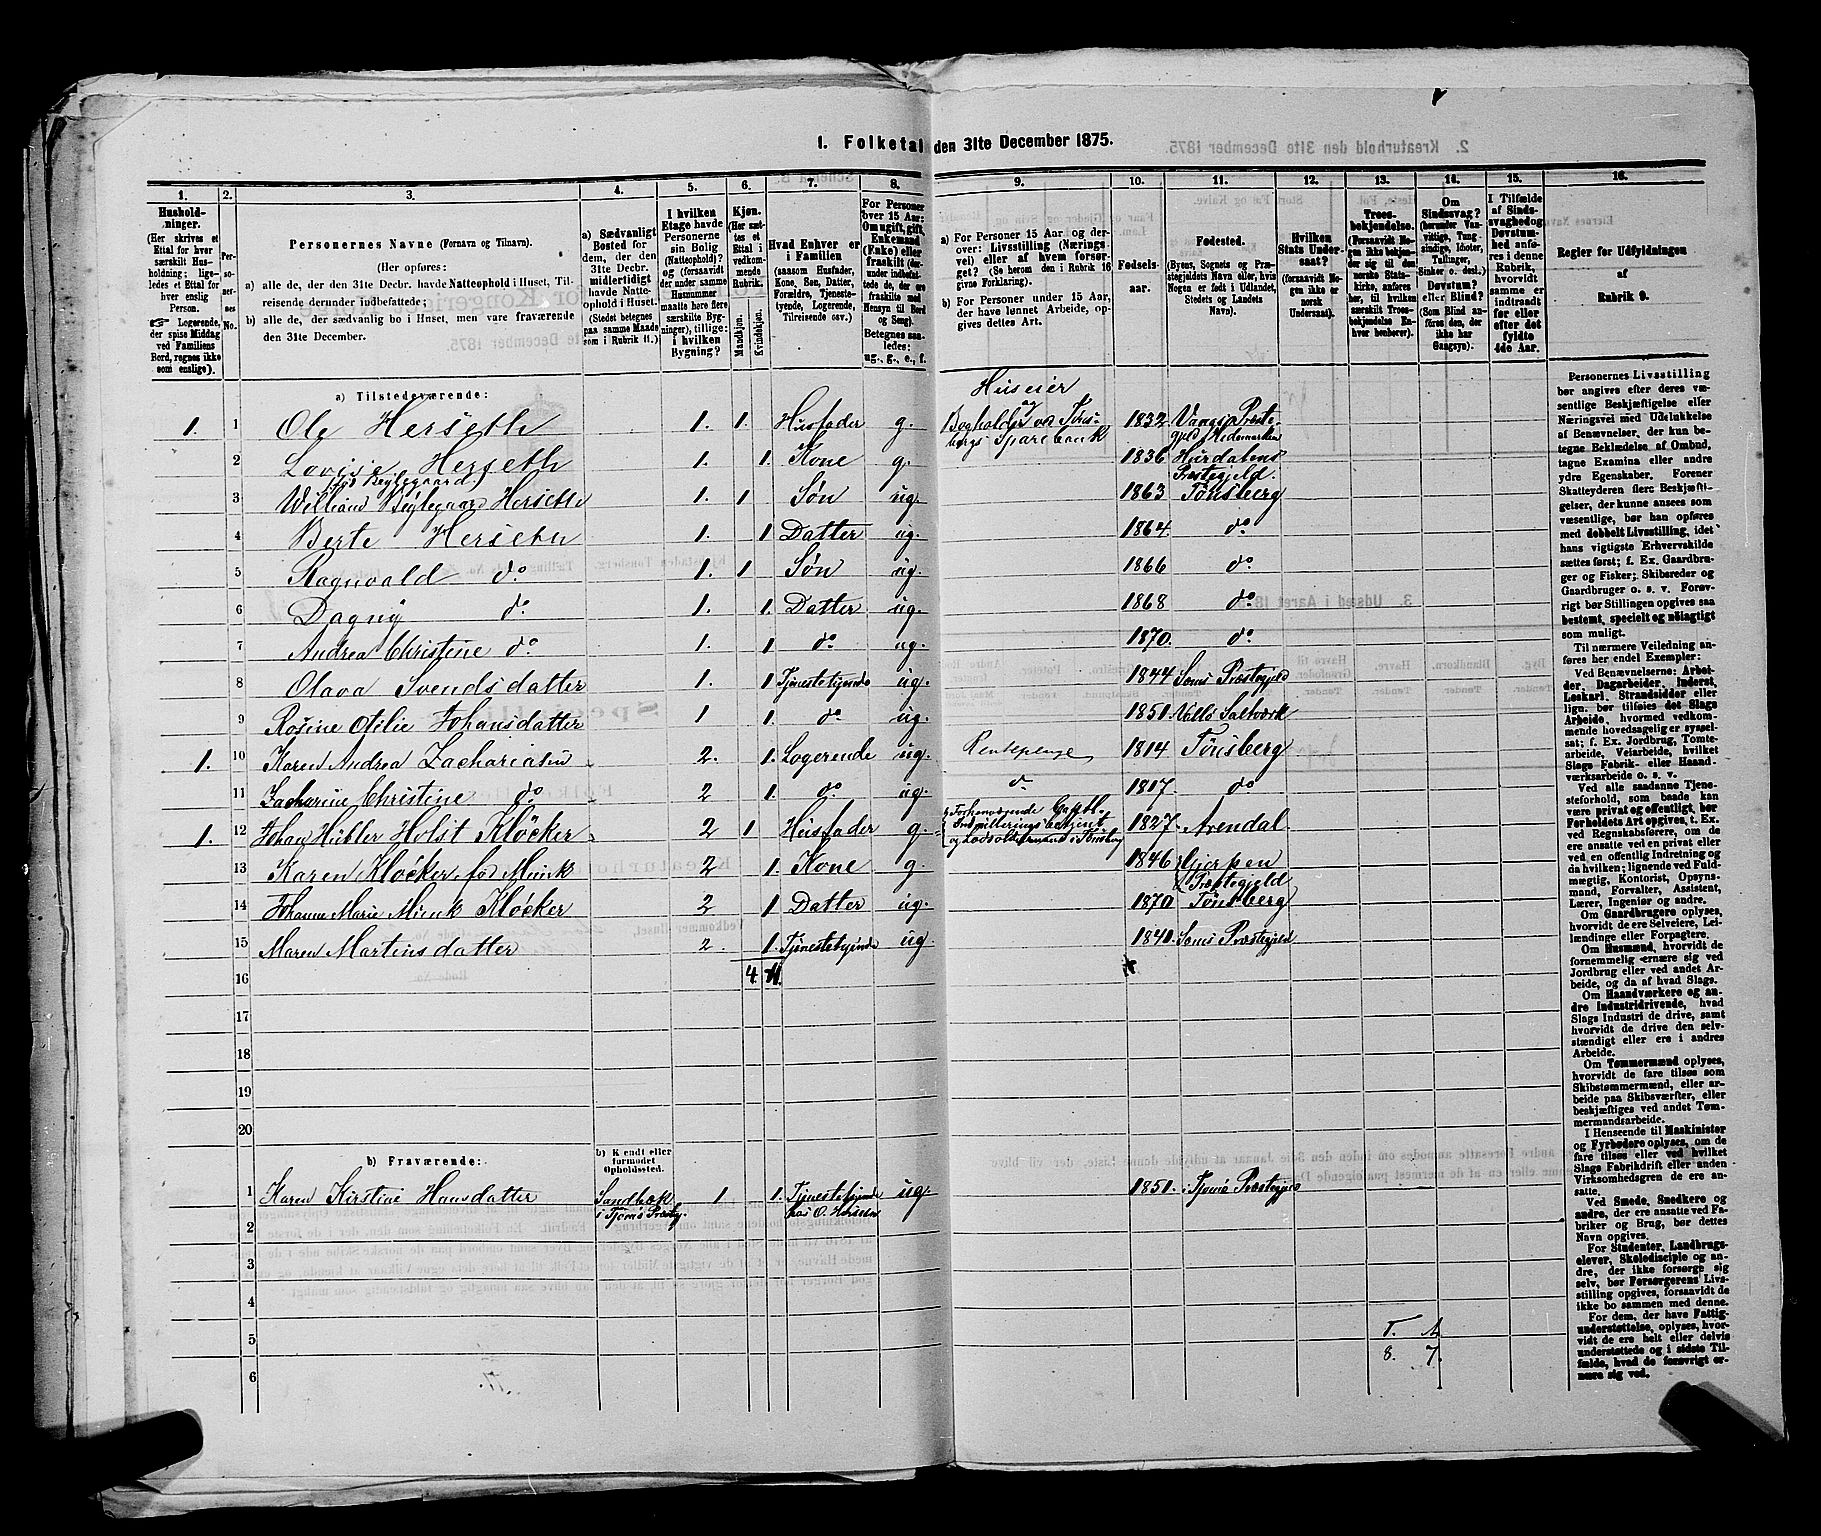 1. Folketal den 31te December 1875.
1. 2. 3. 4. 5. 6. 7. 8. 9. 10. 11. 12. 13. 14. 15. 16.
Hushold-
ninger.
(Her skrives et
Ettal for hver
særskilt Hus-
holdning; lige-
ledes et Ettal for
hver enslig
Person.
☞ Logerende,
der spise Middag
ved Familiens
Bord, regnes ikke
som enslige).
Per-
so-
ner-
nes
No.
Personernes Navne (Fornavn og Tilnavn).
(Her opføres:
a) alle de, der den 31te Decbr. havde Natteophold i Huset, Til-
reisende derunder indbefattede;
b) alle de, der sædvanlig bo i Huset, men vare fraværende
den 31te December.
a) Sædvanligt
Bosted for
dem, der den
31te Decbr.
midlertidigt
havde Natte-
ophold i Huset.
(Stedet betegnes
paa samme Maade
som i Rubrik 11.)
I hvilken
Etage havde
Personerne
sin Bolig
(Natteophold)?
og (forsaavidt
der under samme
Husnummer
maatte høre flere
særskilte Byg-
ninger), tillige:
i hvilken
Bygning?
Kjøn.
(Her sæt-
tes et
Ettal i
vedkom-
mende
Rubrik.
Mandkjøn.
Kvindekjøn.
Hvad Enhver er
i Familien
(saasom Husfader,
Kone, Søn, Datter,
Forældre, Tjeneste-
tyende, Logerende,
Tilreisende osv.)
For Personer
over 15 Aar:
Om ugift, gift,
Enkemand
(Enke) eller
fraskilt (der-
under indbefat-
tede de, der ere
fraskilte med
Hensyn til Bord
og Seng).
Betegnes saa-
ledes:
ug-, g-, e., f.
a) For Personer 15 Aar og der-
over: Livsstilling (Nærings-
vei) eller af hvem forsør-
get? (Se herom den i Rubrik 16
givne Forklaring).
b) For Personer under 15 Aar,
der have lønnet Arbeide, op-
gives dettes Art.
Fødsels-
aar.
Fødested.
(Byens, Sognets og Præ-
stegjeldets Navn eller, hvis
Nogen er født i Udlandet,
Stedets og Landets
Navn).
Hvilken
Stats Under-
saat?
(forsaavidt No-
gen ikke er
norsk
Undersaat).
Troes-
bekjendelse.
(Forsaavidt No-
gen ikke bekjen-
der sig til den
norske Stats-
kirke, anføres
her, til hvilken
særskilt Troes-
bekjendelse En-
hver henhører).
Om
Sindssvag?
(herunder Van-
vittige, Tung-
sindige, Idioter,
Tullinger,
Sinker o. desl.)
Døvstum?
eller Blind?
(Som Blind an-
føres den, der
ikke har
Gangsyn).
I Tilfælde
af Sinds-
svaghed og
Døvstum-
hed anfø-
res i denne
Rubrik,
hvorvidt
samme er
indtraadt
før eller
efter det
fyldte
4de Aar.
Regler for Udfyldningen
af
Rubrik 9.
a) Tilstedeværende:
1. 1 Ole Herseth 1. 1. Husfader g. Huseier og Bogholder ved Tøns-
bergs Sparebank 1832 Vangs Præste-
gjeld Hedemarken
2 Lovise Herseth 1. 1. Kone g. 1836 Hurdalens
Præstegjeld.
født Beylegaard
3 William Beylegaard Herseth 1. 1 Søn ug. 1863 Tønsberg
4 Berte Herseth 1. 1 Datter ug. 1864. do
5 Ragnvald do. 1. 1 Søn ug. 1866 do.
6 Dagny do. 1. 1. Datter ug. 1868 do.
7 Andrea Christine do 1. 1 do. ug. 1870. do.
8 Olava Svendsdatter 1. 1 Tjenestetyende ug. 1844 Sems Præstegjeld
9 Rosine Otilie Johansdatter 1 1. do. ug. 1851. Vallø Saltværk
1. 10 Karen Andrea Zachariasen 2. 1. Logerende ug. Rentepenge 1814 Tønsberg
11 Zacharine Christine do. 2 1. do. ug. do 1817. do
1. 12 Johan Hübler Holst Kløcker 2 1 Husfader g. Forhenværende Captl-
Indrulleringsbetjent
og Lodsoldermand i Tønsberg 1827. Arendal.
13 Karen Kløcker, fød Munk 2 1. Kone g. 1846 Gjerpen
Præstegjeld
14 Johanne Marie Munk Kløcker 2 1 Datter ug. 1870 Tønsberg
15 Maren Martinsdatter 2. 1. Tjenestetyende ug. 1840. Sems Præstegjeld
16 4 11.
17
18
19
20
b) Fraværende:
b) Kendt eller
formodet
Opholdssted.
1 Karen Kirstine Hansdatter Sandbæk
i Tjømø Præstg. 1 1. Tjenestetyende
hos O. Herseth ug. 1851. Tjømø Præstegjeld
2
3
4
5
6
T. A.
8. 7.
Personernes Livsstilling
bør angives efter deres væ-
sentlige Beskjæftigelse eller
Næringsvei med Udelukkelse
af Benævnelser, der kun be-
tegne Beklædelse af Ombud,
tagne Examina eller andre
ydre Egenskaber. Forener
Skatteyderen flere Beskjæfti-
gelser, der kunne ansees som
væsentlige, bør han opføres
med dobbelt Livsstilling, idet
hans vigtigste Erhvervskilde
sættes først; f. Ex. Gaardbru-
ger og Fisker; Skibsreder og
Gaardbruger o. s. v. Forøv-
rigt bør Stillingen opgives saa
bestemt, specielt og nøiagtigt
som muligt.
Til nærmere Veiledning an-
føres her endel Exempler:
Ved Benævnelserne: Arbei-
der, Dagarbeider, Inderst,
Løskarl, Strandsidder eller
lign. bør tilføies det Slags
Arbeide, hvormed vedkom-
mende hovedsagelig er syssel-
sat; f. Ex. Jordbrug, Tomte-
arbeide, Veiarbeide, hvilket
Slags Fabrik- eller Haand-
værksarbeide o. s. v.
Ved alle saadanne Tjene-
steforhold, som baade kan
være privat og offentligt, bør
Forholdets Art opgives, t. Ex.
ved Regnskabsførere, om de
ere ansatte ved en privat eller
ved en offentlig Indretning og
da hvilken; lignende ved Fuld-
mægtig, Kontorist, Opsyns-
mand, Forvalter, Assistent,
Lærer, Ingeniør og andre.
Om Gaardbrugere oplyses,
hvorvidt de ere Selveiere, Lei-
lændinge eller Forpagtere.
Om Husmænd, hvorvidt de
fornemmelig ernære sig ved
Jordbrug eller ved andet Ar-
beide, og da af hvad Slags.
Om Haandværkere og an-
dre Industridrivende, hvad
Slags Industri de drive, samt
hvorvidt de drive den selv-
stændigt eller ere i andres
Arbeide.
Om Tømmermænd oplyses,
hvorvidt de fare tilsøs som
Skibstømmermænd, eller ar-
beide paa Skibsværfter, eller
beskjæftiges ved andet Tøm-
mermandsarbeide.
I Henseende til Maskinister
og Fyrbødere oplyses, om de
fare tilsøs eller ved hvilket
Slags Fabrikdrift eller anden
Virksomhedsgren de ere an-
satte.
Ved Smede, Snedkere og
andre, der ere ansatte ved Fa-
briker og Brug, bør dettes
Navn opgives.
For Studenter, Landbrugs-
elever, Skoledisciple og an-
dre, der ikke forsørge sig
selv, bør Forsørgerens Livs-
stilling opgives, forsaavidt de
ikke bo sammen med denne.
For dem, der have Fattig-
understøttelse, oplyses, hvor-
vidt de ere helt eller delvis
understøttede og i sidste Til-
fælde, hvad de forøvrigt er-
nære sig ved.